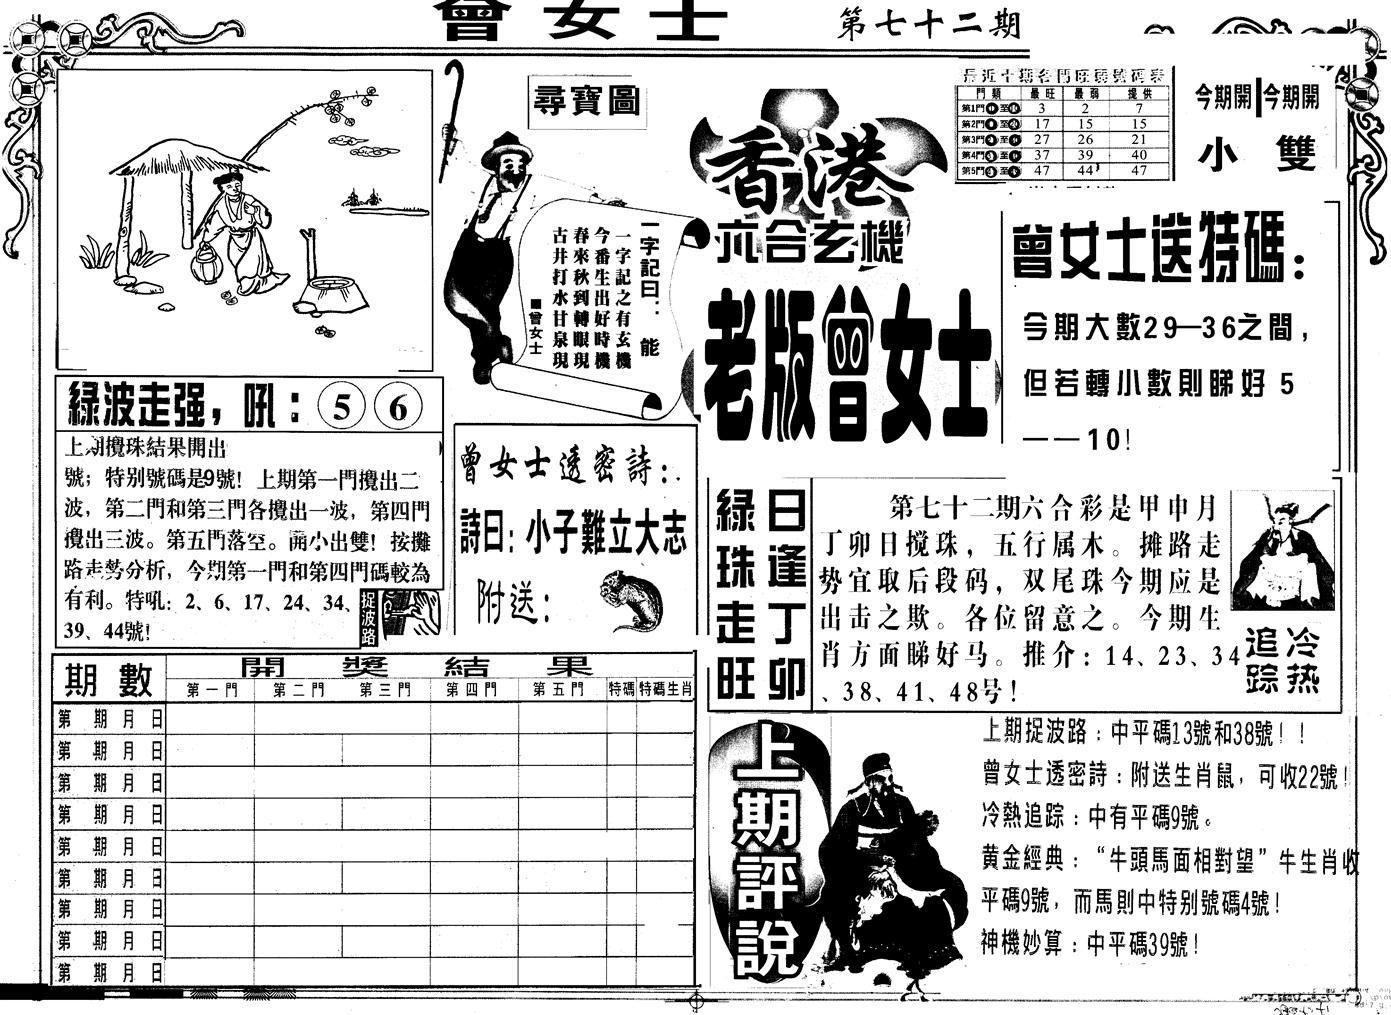 曾女士
第七十二期
尋寶圖
一字記曰：能
一字記之有玄機
今番生出好時機
春來秋到轉眼現
古井打水甘泉現
■曾女士
香港
六合玄機
老版曾女士
最近十期各門旺弱號碼表
門類 最旺 最弱 提供
第1門 至 3 2 7
第2門 至 17 15 15
第3門 至 27 26 21
第4門 至 37 39 40
第5門 至 47 44 47
今期開 今期開
小 雙
曾女士送特碼：
今期大數29—36之間，
但若轉小數則睇好 5
——10！
綠波走强，吼：5 6
上期攪珠結果開出
號；特别號碼是9號！上期第一門攪出二
波，第二門和第三門各攪出一波，第四門
攪出三波。第五門落空。開小出雙！按攤
路走勢分析，今期第一門和第四門碼較為
有利。特吼：2、6、17、24、34、
39、44號！
捉波路
曾女士透密詩：
詩曰：小子難立大志
附送：
綠珠走旺
日逢丁卯
第七十二期六合彩是甲申月
丁卯日搅珠，五行属木。摊路走
势宜取后段码，双尾珠今期应是
出击之欺。各位留意之。今期生
肖方面睇好马。推介：14、23、34
、38、41、48号！
冷热
追踪
期數 開獎結果
第一門 第二門 第三門 第四門 第五門 特碼 特碼生肖
第 期 月 日
第 期 月 日
第 期 月 日
第 期 月 日
第 期 月 日
第 期 月 日
第 期 月 日
第 期 月 日
第 期 月 日
上期評說
上期捉波路：中平碼13號和38號！！
曾女士透密詩：附送生肖鼠，可收22號！
冷熱追踪：中有平碼9號。
黄金經典：“牛頭馬面相對望”牛生肖收
平碼9號，而馬則中特别號碼4號！
神機妙算：中平碼39號！